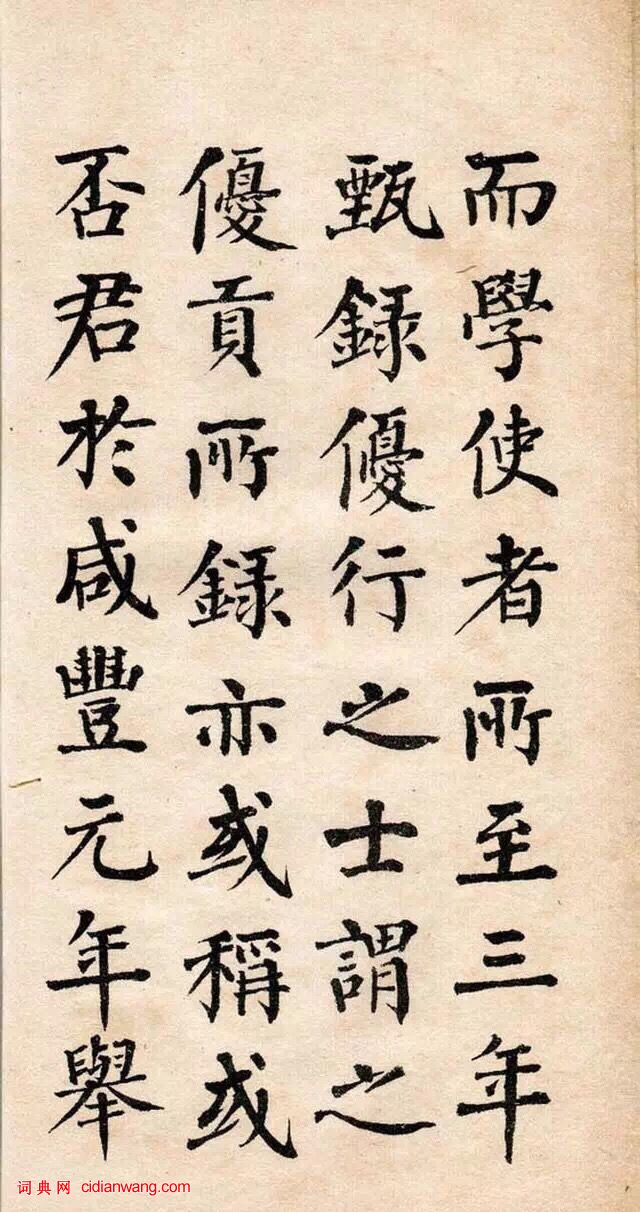 而學使者所至三年
甄録優行之士謂之
優貢所録亦或稱或
否君於咸豐元年舉
词典网 cidianwang.com